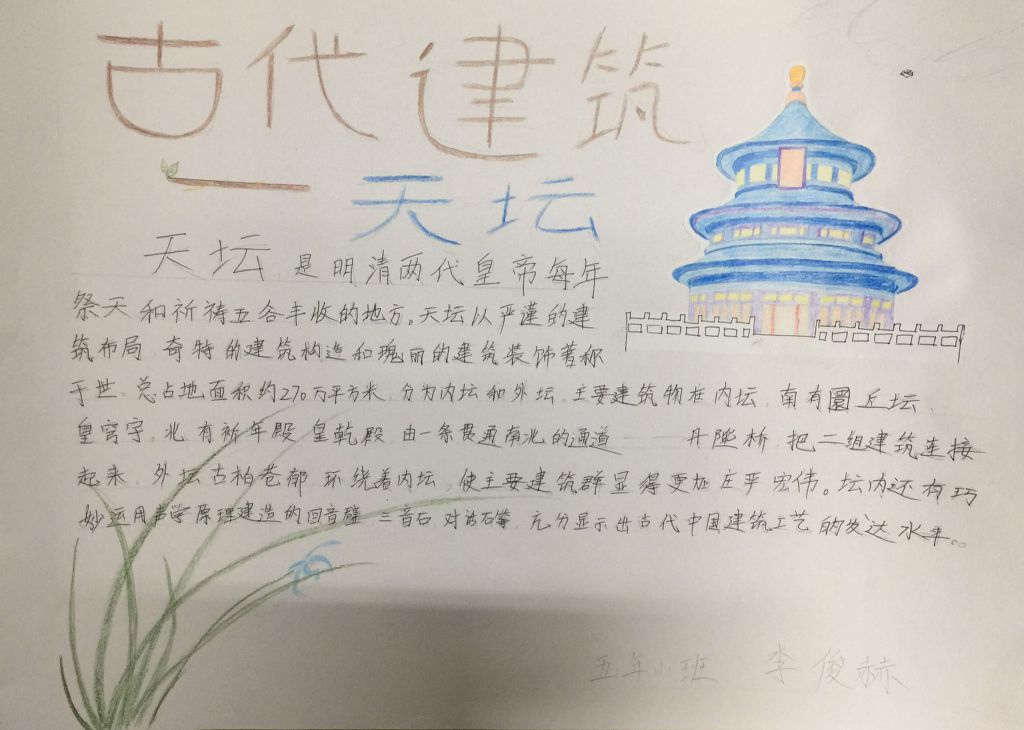 古代建筑
天坛
天坛是明清两代皇帝每年
祭天和祈祷五谷丰收的地方。天坛以严谨的建
筑布局,奇特的建筑构造和瑰丽的建筑装饰著称
于世。总占地面积约270万平方米,分为内坛和外坛,主要建筑物在内坛,南有圜丘坛,
皇穹宇,北有祈年殿,皇乾殿,由一条贯通南北的通道——丹陛桥,把二组建筑连接
起来,外坛古柏苍郁,环绕着内坛,使主要建筑群显得更加庄严宏伟。坛内还有巧
妙运用声学原理建造的回音壁,三音石,对话石等,充分显示出古代中国建筑工艺的发达水平。
五年小班 李俊赫